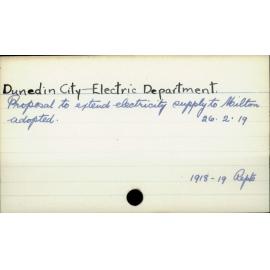 Dunedin City Electric Department.
Proposal to extend electricity supply to Milton
adopted. 26. 2. 19
1918-19 Repts